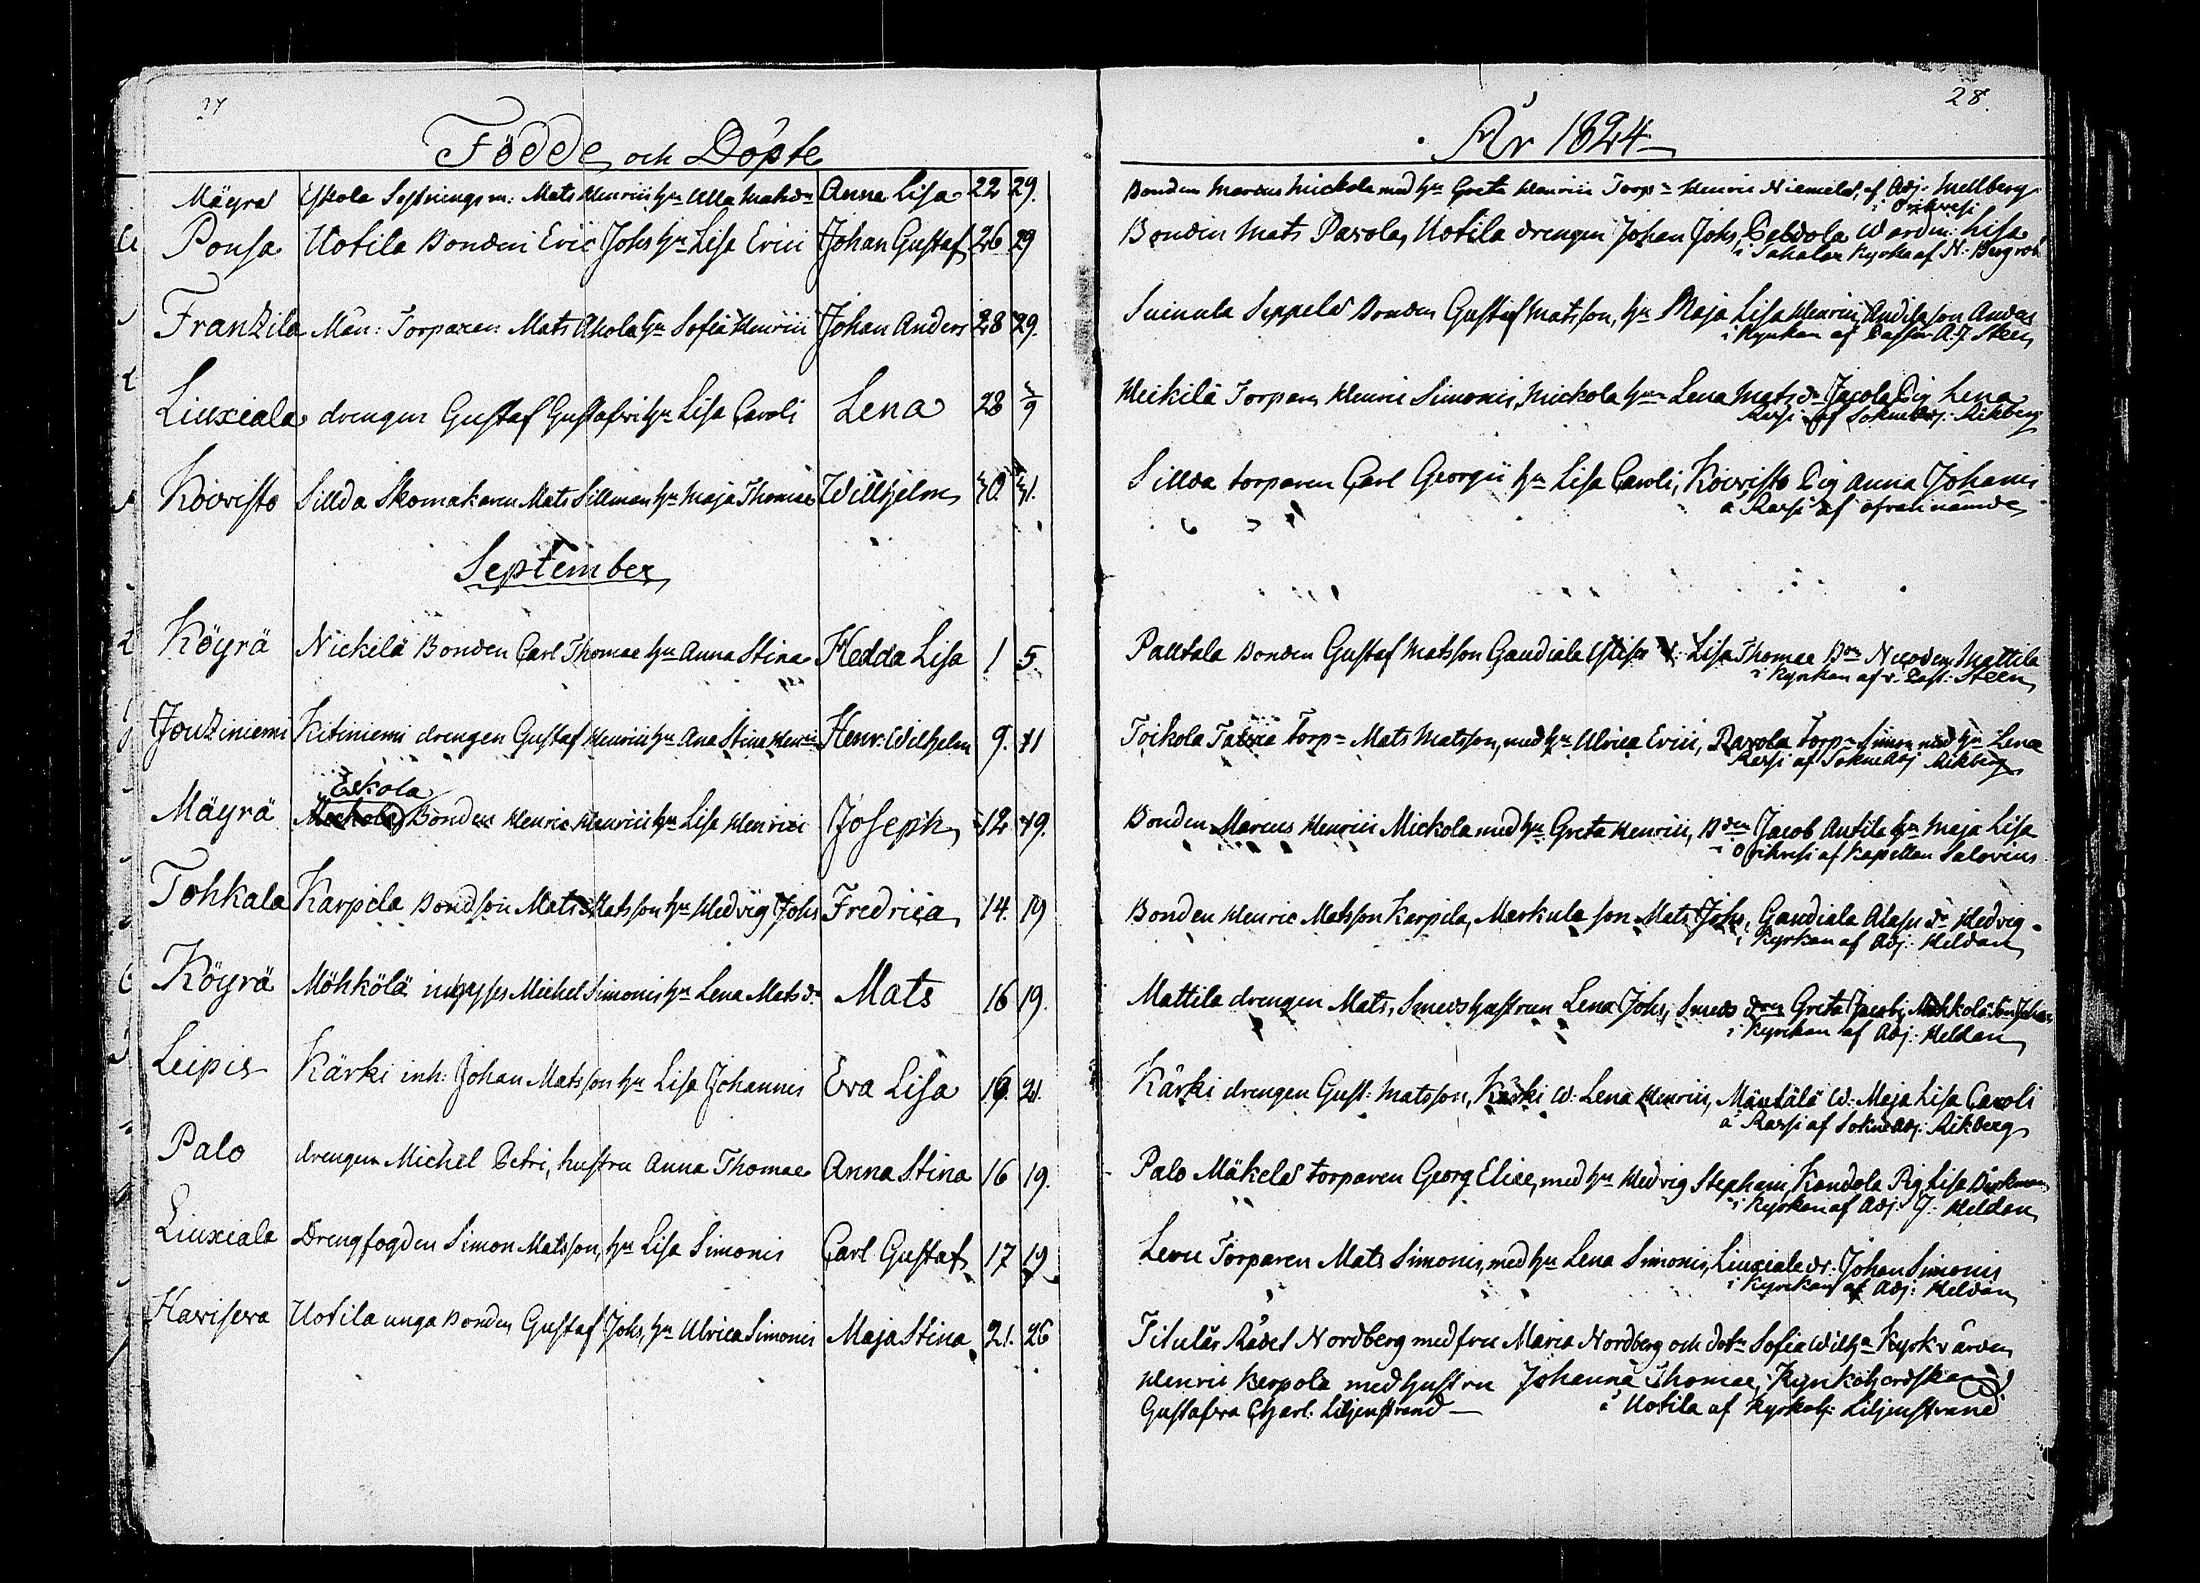 27
Födde och Döpte
Mäyrä Eskola Sexnings m: Mats Henrici hu Ulla Matsdr Anna Lisa 22 29.
Ponsa Uotila Bonden Eric Johs hu Lisa Erici Johan Gustaf 26 29
Franzila Mån: Torparen Mats Akola hu Sofia Henrici Johan Anders 28 29.
Liuxiala drengen Gustaf Gustafvi hu Lisa Caroli Lena 28 5/9
Koivisto Sillda Skomakaren Mats Sillman hu Maja Thomae Willhelm 30. 31.
September
Köyrä Nickilä Bonden Carl Thomae hu Anna Stina Hedda Lisa 1 5.
Jouziniemi Kitiniemi drengen Gustaf Henrici hu Ana Stina Henrici Henr: Wilhelm 9. 11
Eskola
Mäyrä Bonden Henric Henrici hu Lisa Henrici Joseph 12 19.
Tohkala Karpila Bondson Mats Matsson hu Hedvig Johs Fredrica 14. 19
Köyrä Möhkölä inhyses Michel Simonis hu Lena Matsdr Mats 16 19.
Leipis Kärki inh: Johan Matsson hu Lisa Johannis Eva Lisa 19. 21.
Palo drengen Michel Petri, hustru Anna Thomae Anna Stina 16 19.
Liuxiala Drengfogden Simon Matsson, hu Lisa Simonis Carl Gustaf 17 19
Havisera Uotila unga Bonden Gustaf Johs, hu Ulrica Simonis Maja Stina 21. 26
28.
År 1824
Bonden Marcus Mickola med hu Greta Henrici Torp= Henric Niemelä, af Adj: Mellberg
i Orihvesi
Bonden Mats Parola, Uotila drengen Johan Johs, Pardola Wärdin: Lisa
i Sahalax Kyrka af N: Bergroth
Suinula Seppelä Bonden Gustaf Matsson, hu Maja Lisa Henrici, Andila son Anders
i Kyrkan af Pastor A: J Steen
Heikilä Torparen Henric Simonis, Mickola hu Lena Matsdr Jacola Pig Lena
Kersi af SokneAdj: Rikberg
Sillda torparen Carl Georgii hu Lisa Caroli, Koivisto Pig Anna Johanis
å Kersi af ofvan nämde
Pautala Bonden Gustaf Matsson Gaudiala Lisa Thomae Bon Mattila
i Kyrkan af v: Past: Steen
Toikola torp= Mats Matsson, med hu Ulrica Erici, Parola Torp= Simon med hu Lena
Kersi af SokneAdj Rikberg
Bonden Marcus Henrici Mickola med hu Greta Henrici, Bden Jacob Antila hu Maja Lisa
i Orihvesi af Kapellan Salovius
Bonden Henric Matsson Karpila, Markula son Mats Johs, Gaudiala Alasu dr Hedvig
i Kyrkan af Adj: Heldan
Mattila drengen Mats, Smeds hustrun Lena Johs, Smeds dren Greta Jacobi, Möhkölä son Johan
i Kyrkan af Adj: Heldan
Kärki drengen Gust: Matsson, Kärki W: Lena Henrici, Mäntälä W: Maja Lisa Caroli
å Kersi af SokneAdj: Rikberg
Palo Mäkelä torparen Georg Eliae, med hu Hedvig Stephani, Kandola Pig Lisa
i Kyrkan af Adj: J: Heldan
Leru Torparen Mats Simonis, med hu Lena Simonis, Liuxiala dr: Johan Simonis
i Kyrkan af Adj: Heldan
Titulär Rådet Nordberg med fru Maria Nordberg och dotr Sofia Wilha Kyrkvärden
Henric Kerpola med hustru Johanna Thomae, Kyrkoherdskan
Gustafva Charl: Liljenstrand — i Uotila af Kyrkoh: Liljenstrand